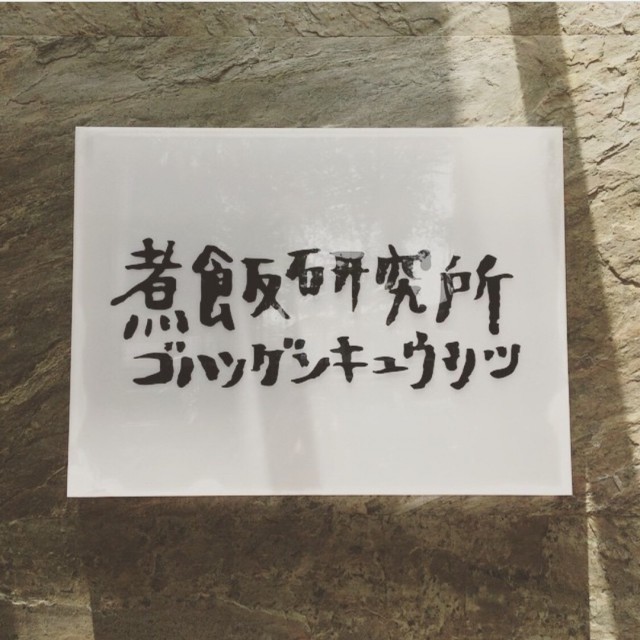 煮飯研究所
ゴハンゲンキュウリツ